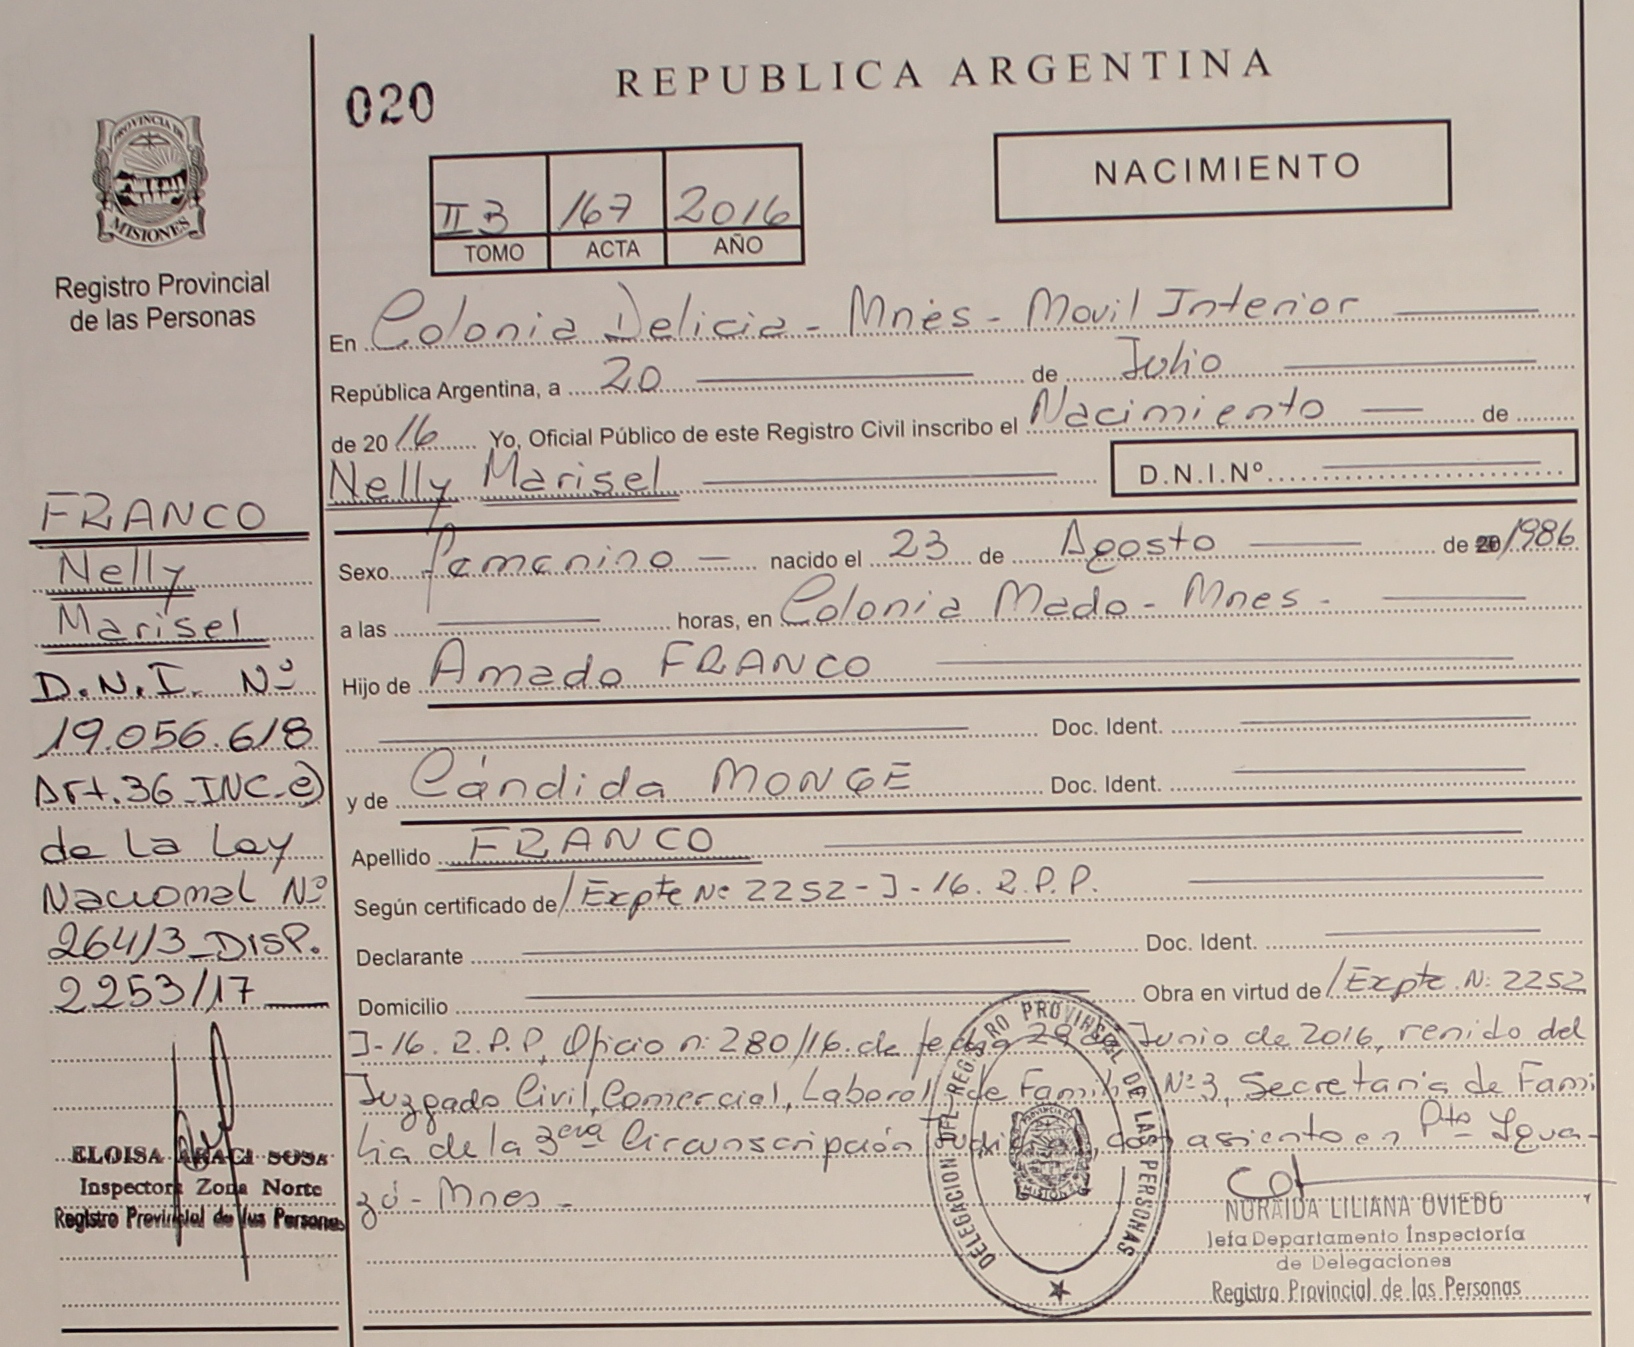 020
REPUBLICA ARGENTINA
PROVINCIA DE
MISIONES
Registro Provincial
de las Personas
II B 167 2016
TOMO ACTA AÑO
NACIMIENTO
En Colonia Delicia - Mnes - Movil Interior
República Argentina, a 20 de Julio
de 2016 Yo, Oficial Público de este Registro Civil inscribo el Nacimiento de
Nelly Marisel D.N.I.Nº
Sexo femenino nacido el 23 de Agosto de 20/1986
a las horas, en Colonia Mado - Mnes -
Hijo de Amado FRANCO
Doc. Ident.
y de Cándida MONGE Doc. Ident.
Apellido FRANCO
Según certificado de/Expte Nº 2252-J-16. R.P.P.
Declarante Doc. Ident.
Domicilio Obra en virtud de/Expte. N: 2252
J-16. R.P.P, Oficio n: 280/16. de fecha 29 de Junio de 2016, renido del
Juzgado Civil, Comercial, Laboral, de Familia Nº3, Secretaría de Fami
lia de la 3era Circunscripción Judicial, con asiento en Pto Igua-
zú - Mnes -
FRANCO
Nelly
Marisel
D.N.I. Nº
19.056.618
Art.36 INC-e)
de La Ley
Nacional Nº
26413 - DISP.
2253/17
ELOISA ARACI SOSA
Inspectora Zona Norte
Registro Provincial de las Personas
DELEGACION DEL REGISTRO PROVINCIAL DE LAS PERSONAS
NORAIDA LILIANA OVIEDO
Jefa Departamento Inspectoría
de Delegaciones
Registro Provincial de las Personas